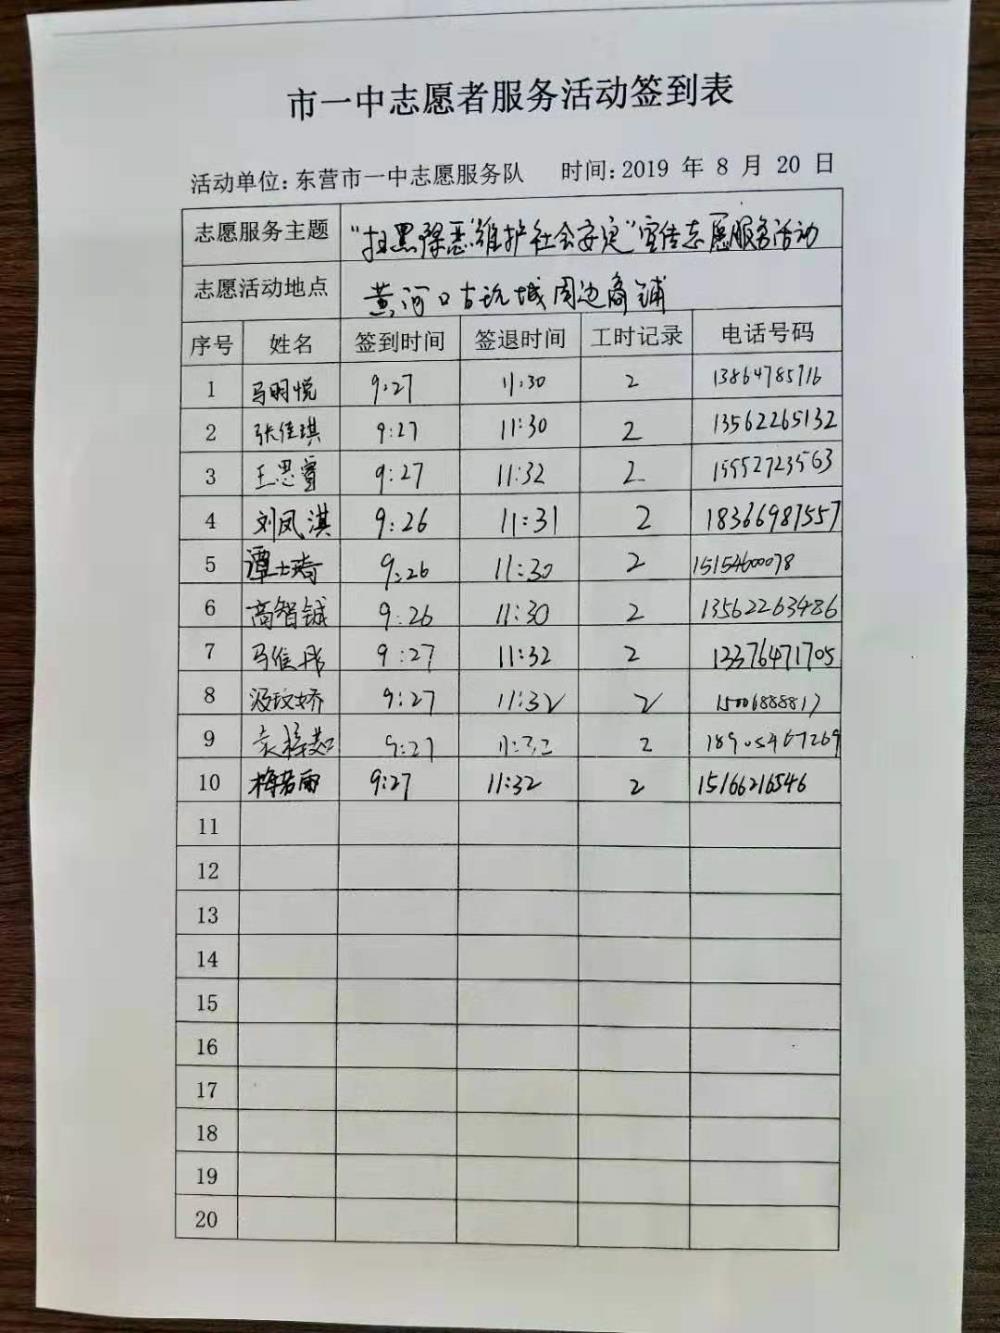 市一中志愿者服务活动签到表
活动单位:东营市一中志愿服务队 时间:2019 年 8 月 20 日
志愿服务主题 "扫黑除恶维护社会安定"宣传志愿服务活动
志愿活动地点 黄河口古玩城周边商铺
序号 姓名 签到时间 签退时间 工时记录 电话号码
1 马明悦 9:27 11:30 2 13864785716
2 张佳琪 9:27 11:30 2 13562265132
3 王思睿 9:27 11:32 2 15552723563
4 刘凤淇 9:26 11:31 2 18366987557
5 谭士琦 9:26 11:30 2 15154600078
6 商智铖 9:26 11:30 2 13562263486
7 马佳彤 9:27 11:32 2 13376471705
8 9:27 11:32 2 15006888817
9 9:27 11:32 2 18905467269
10 梅若雨 9:27 11:32 2 15166216546
11
12
13
14
15
16
17
18
19
20